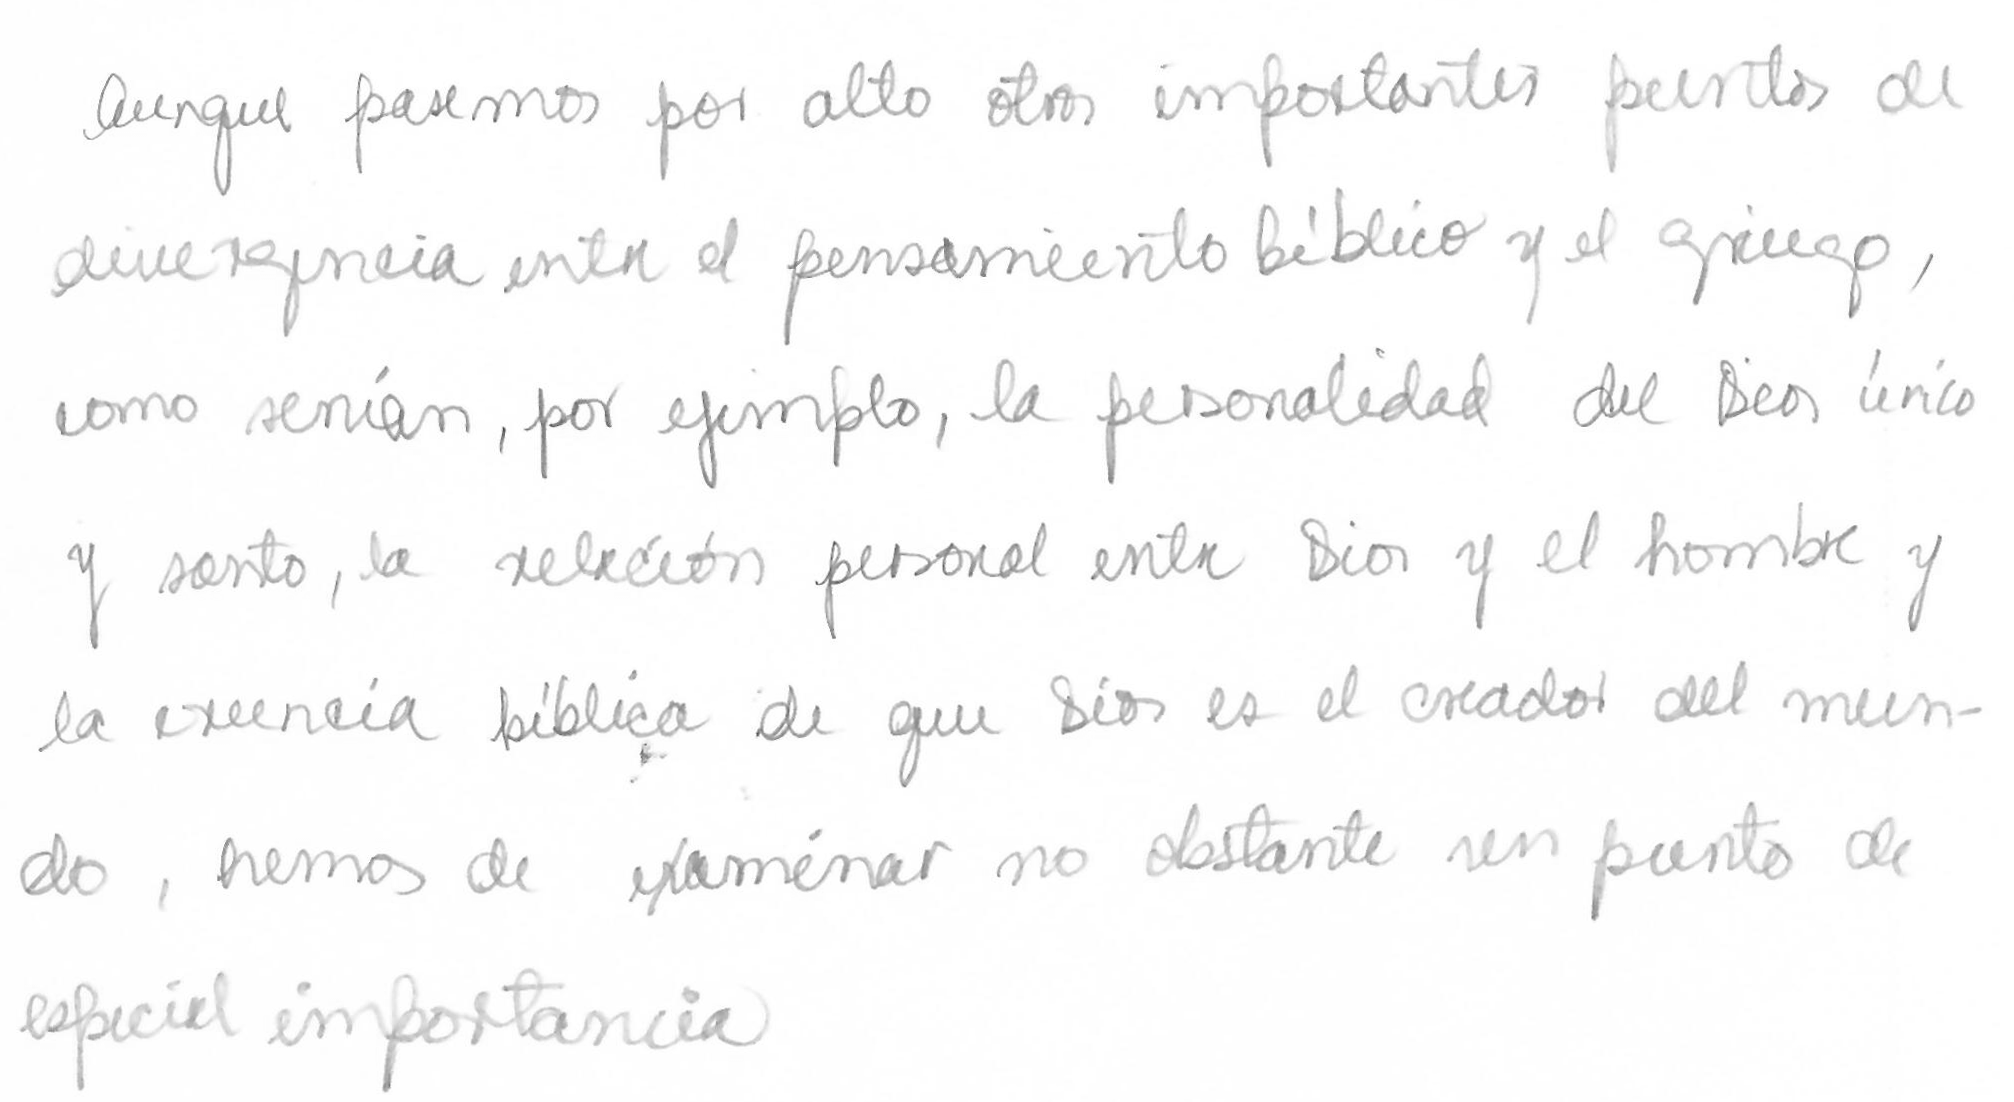 Aunque pasemos por alto otros importantes puntos de
divergencia entre el pensamiento bíblico y el griego,
como serían, por ejemplo, la personalidad del Dios único
y santo, la relación personal entre Dios y el hombre y
la creencia bíblica de que Dios es el creador del mun-
do, hemos de examinar no obstante un punto de
especial importancia